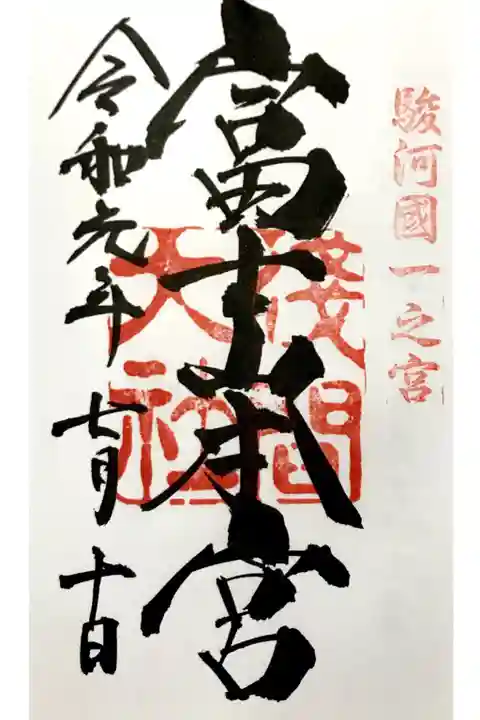 駿河國一之宮
富士山本宮
淺間
大社
令和元年七月十日